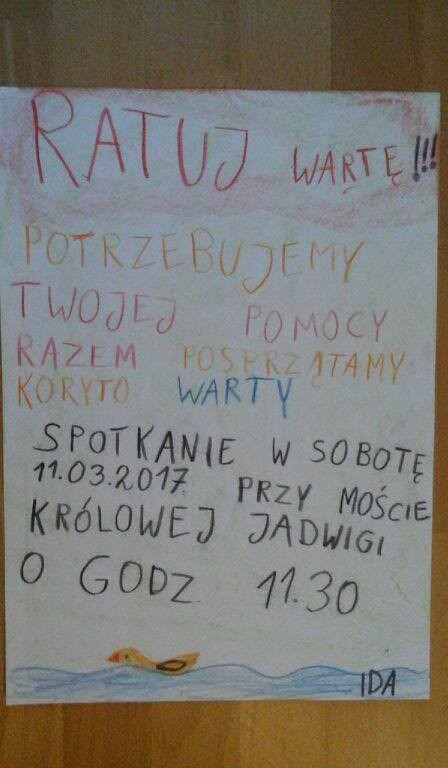 RATUJ WARTĘ!!!
POTRZEBUJEMY
TWOJEJ POMOCY
RAZEM POSPRZĄTAMY
KORYTO WARTY
SPOTKANIE W SOBOTĘ
11.03.2017 PRZY MOŚCIE
KRÓLOWEJ JADWIGI
O GODZ 11.30
IDA